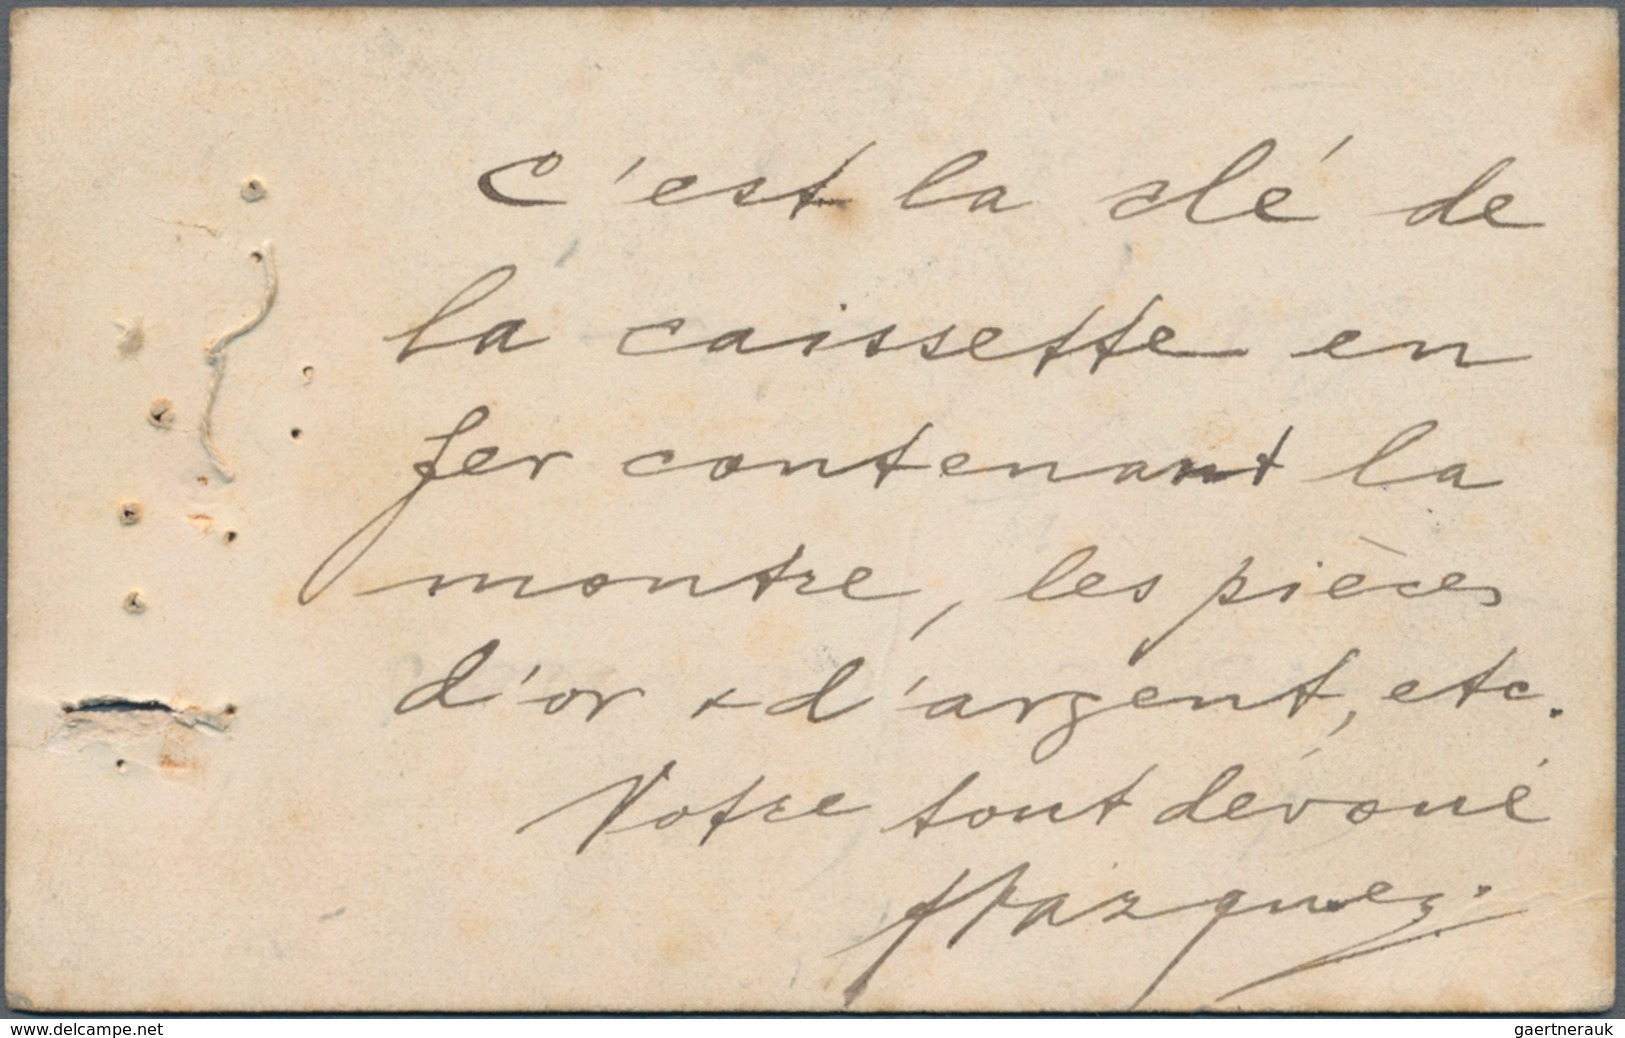 C'est la clé de
la caissette en
fer contenant la
montre, les pièces
d'or & d'argent, etc.
Votre tout dévoué
www.delcampe.net
gaertnerauk